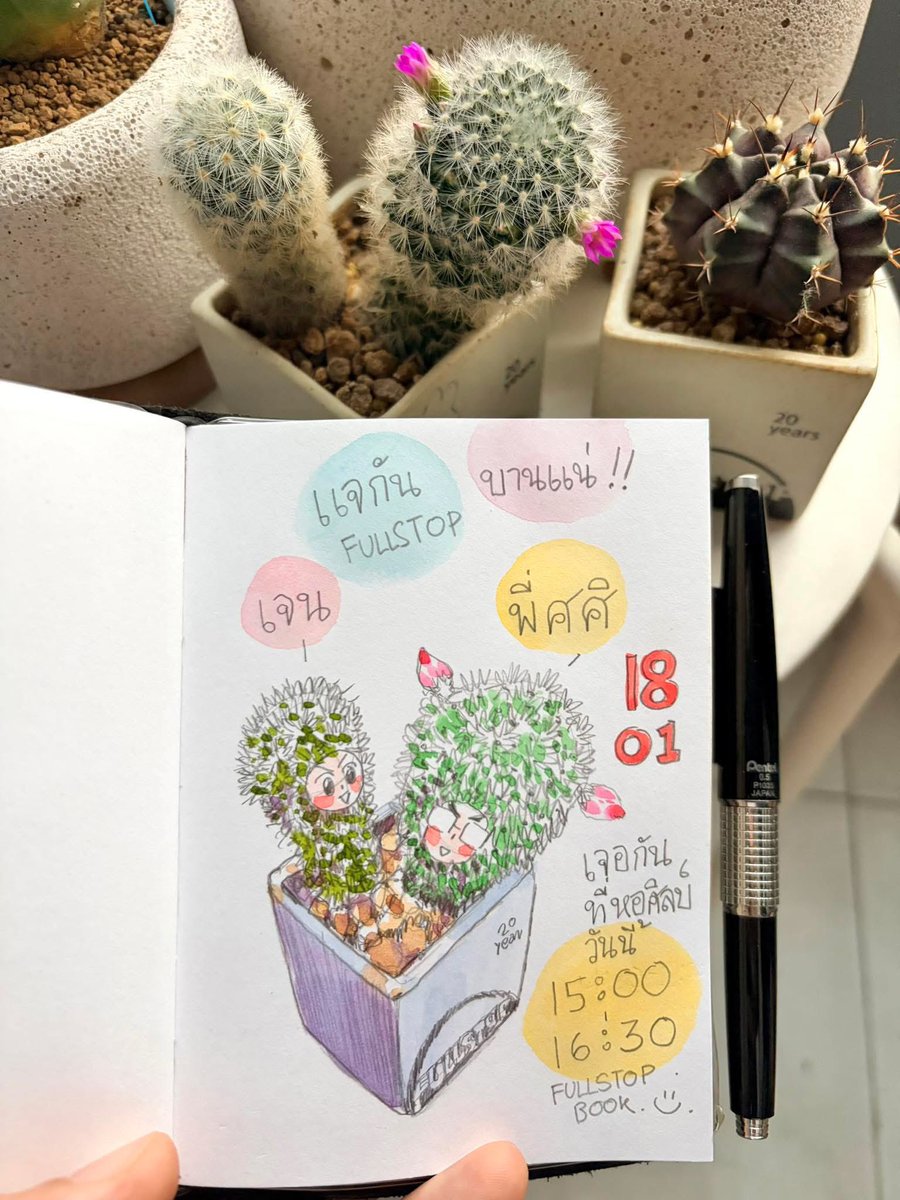 20
years
20
years
แจกัน
FULLSTOP
บานแน่!!
เจน
พี่ศศิ
18
01
20
year
FULLSTOP
เจอกัน
ที่หอศิลป์
วันนี้
15:00
16:30
FULLSTOP
BOOK.
Pentel
0.5
P1035
JAPAN